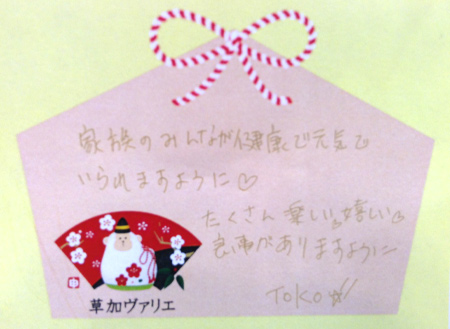 家族のみんなが健康で元気で
いられますように♡
たくさん楽しい♡嬉しい♡
良い事がありますように
TOKO☆
草加ヴァリエ